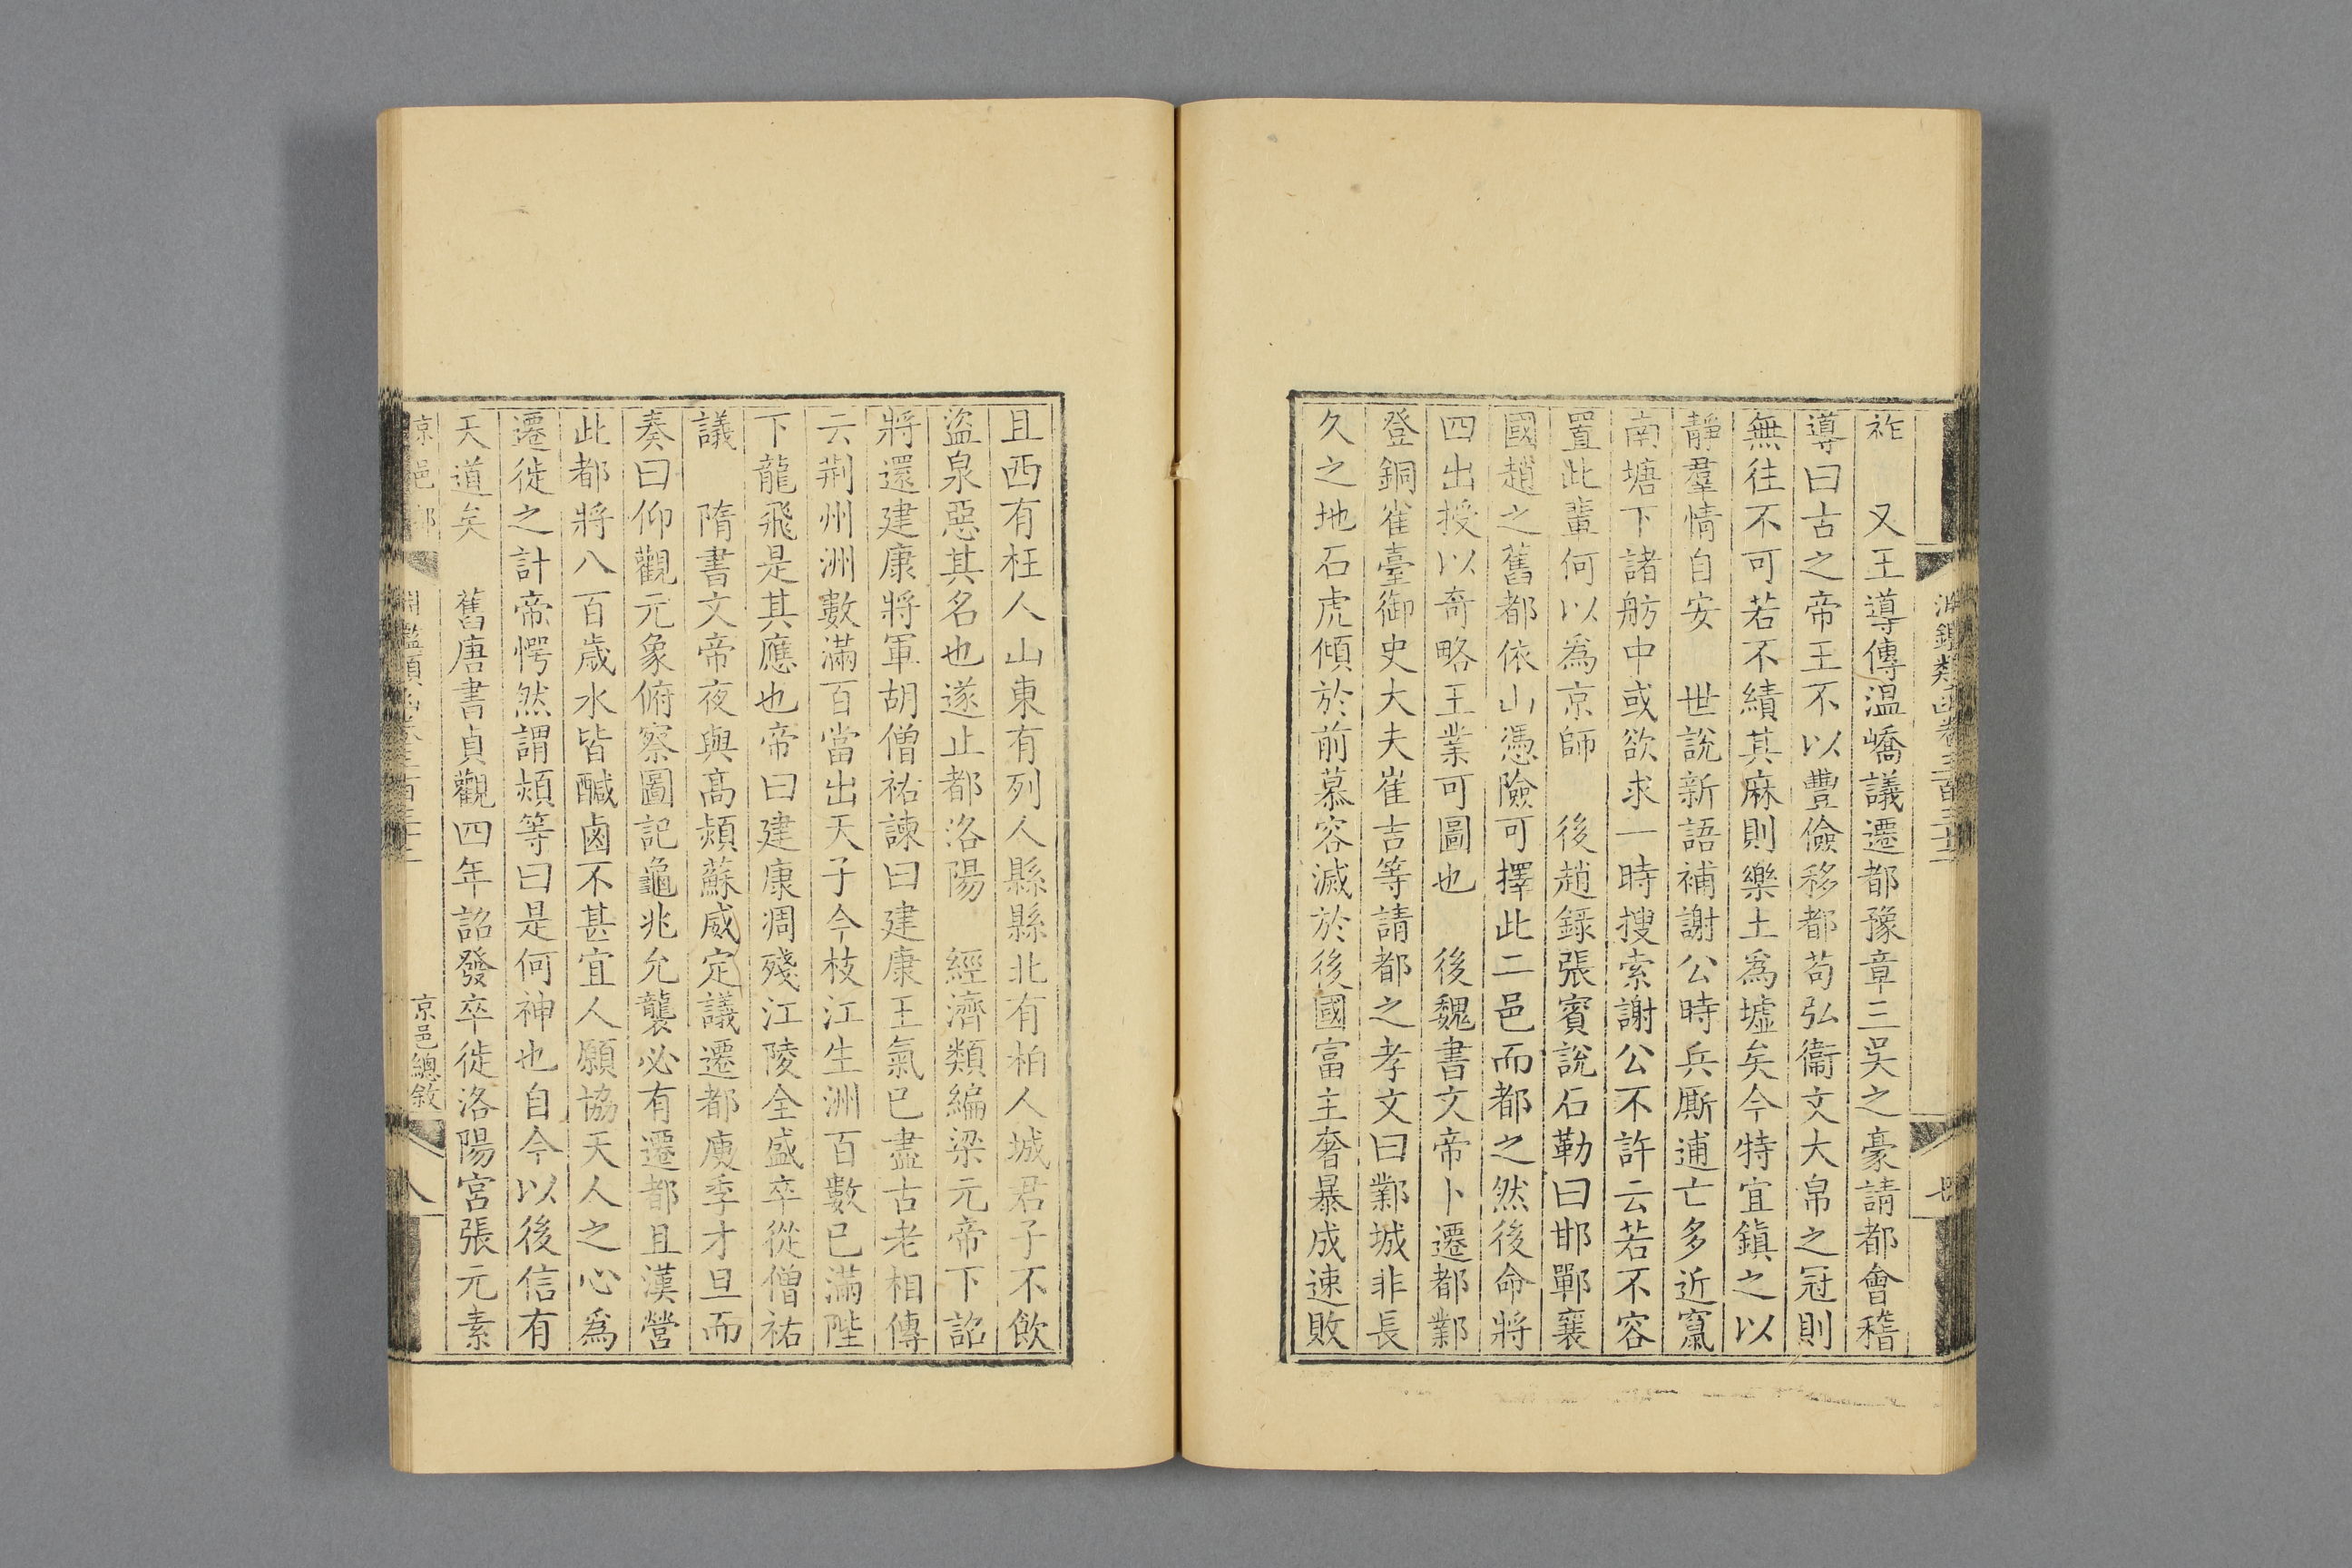 祚　又王導傳温嶠議遷都豫章三吳之豪請都會稽
導曰古之帝王不以豐儉移都苟弘衞文大帛之冠則
無往不可若不績其麻則樂土爲墟矣今特宜鎭之以
靜羣情自安　世說新語補謝公時兵厮逋亡多近竄
南塘下諸舫中或欲求一時搜索謝公不許云若不容
置此輩何以爲京師　後趙錄張賓說石勒曰邯鄲襄
國趙之舊都依山憑險可擇此二邑而都之然後命將
四出授以奇略王業可圖也　後魏書文帝卜遷都鄴
登銅雀臺御史大夫崔吉等請都之孝文曰鄴城非長
久之地石虎傾於前慕容滅於後國富主奢暴成速敗
且西有枉人山東有列人縣縣北有柏人城君子不飲
盜泉惡其名也遂止都洛陽　經濟類編梁元帝下詔
將還建康將軍胡僧祐諫曰建康王氣已盡古老相傳
云荆州洲數滿百當出天子今枝江生洲百數已滿陛
下龍飛是其應也帝曰建康凋殘江陵全盛卒從僧祐
議　隋書文帝夜與高熲蘇威定議遷都庾季才旦而
奏曰仰觀元象俯察圖記龜兆允襲必有遷都且漢營
此都將八百歲水皆鹹鹵不甚宜人願協天人之心爲
遷徙之計帝愕然謂熲等曰是何神也自今以後信有
天道矣　舊唐書貞觀四年詔發卒徙洛陽宮張元素
京邑總敘
八